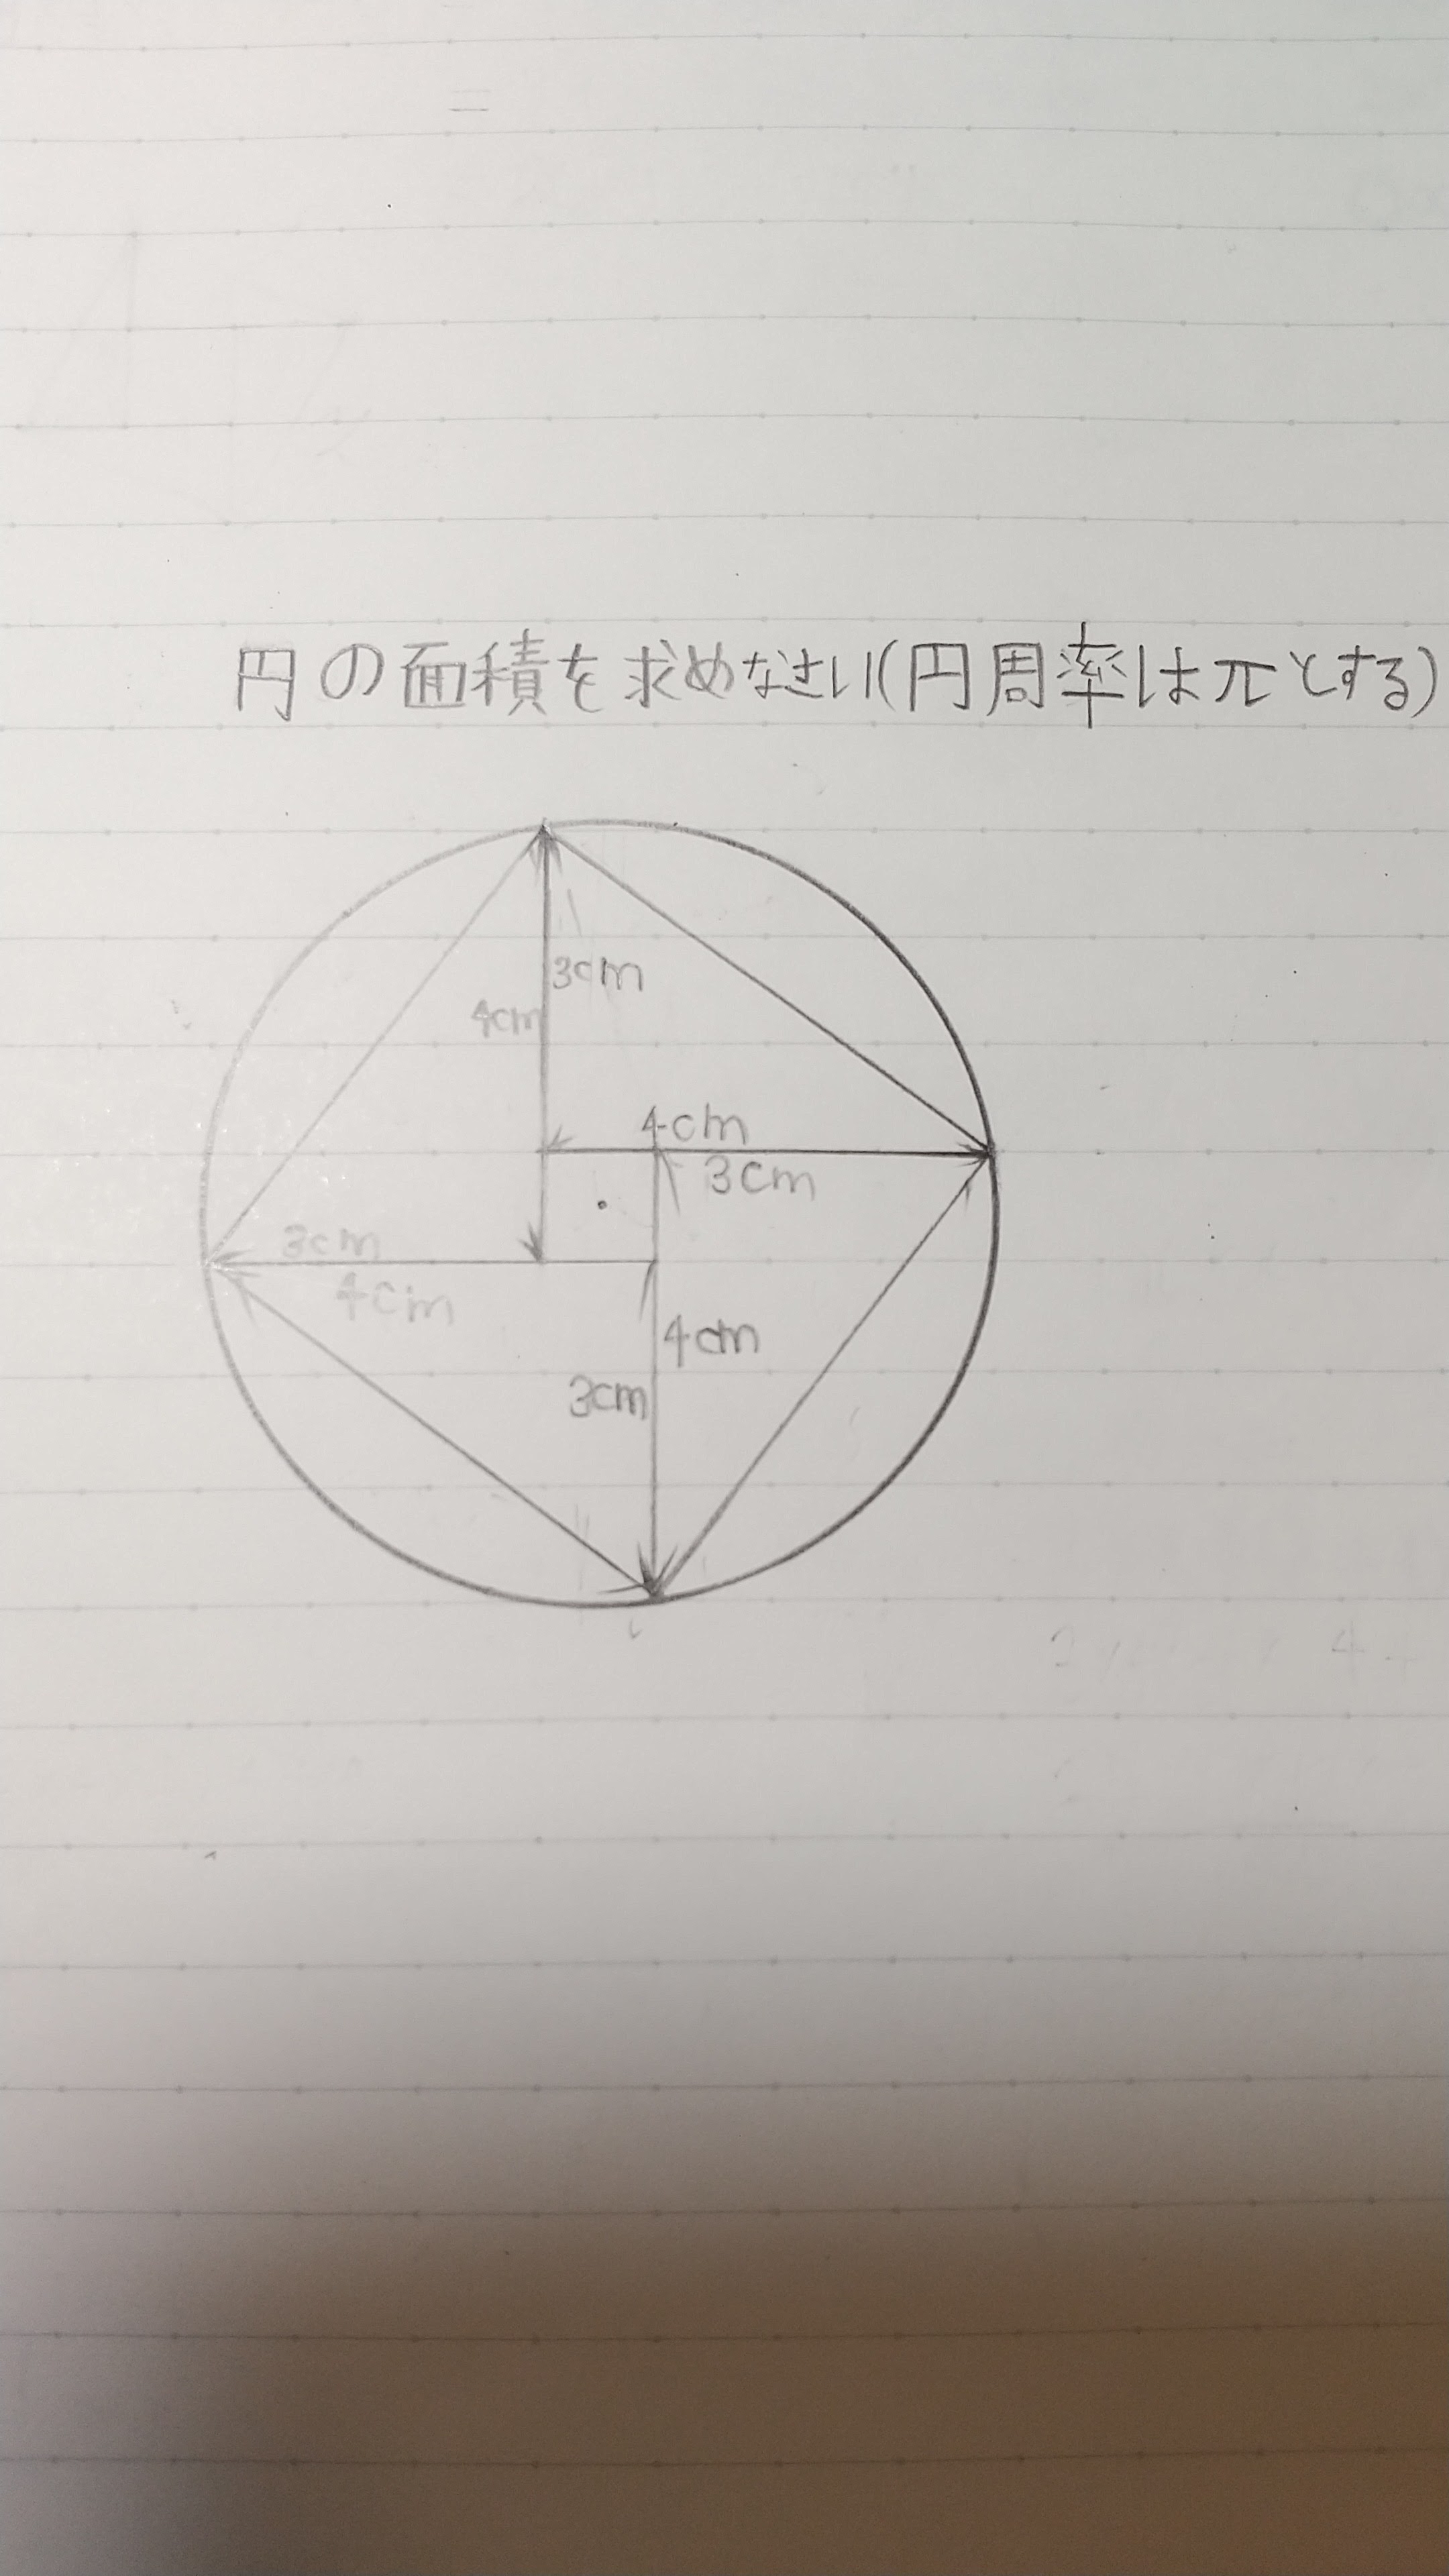 円の面積を求めなさい(円周率はπとする)
3cm
4cm
4cm
3cm
3cm
4cm
4cm
3cm